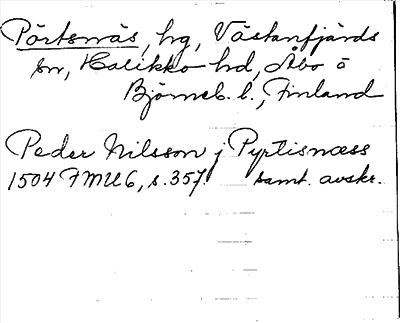 Pörtsnäs, hg, Västanfjärds
sn, Halikko hd, Åbo o
Björneb. l., Finland
Peder Nilsson j Pyrtisnæss
1504 FMU 6, s. 357. samt. avskr.